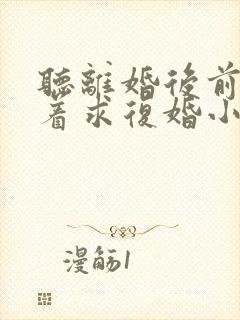 聽離婚後前
着求復婚小
漫觞1